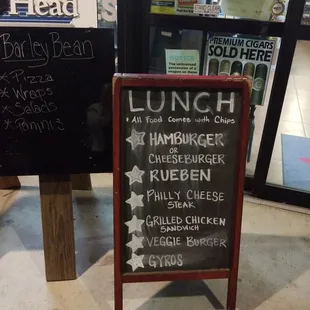 Head
Barley Bean
* Pizza
* Wraps
* Salads
* Paninis
PREMIUM CIGARS
SOLD HERE
LUNCH
* All Food Comes with Chips
HAMBURGER
OR
CHEESEBURGER
RUEBEN
PHILLY CHEESE
STEAK
GRILLED CHICKEN
SANDWICH
VEGGIE BURGER
GYROS